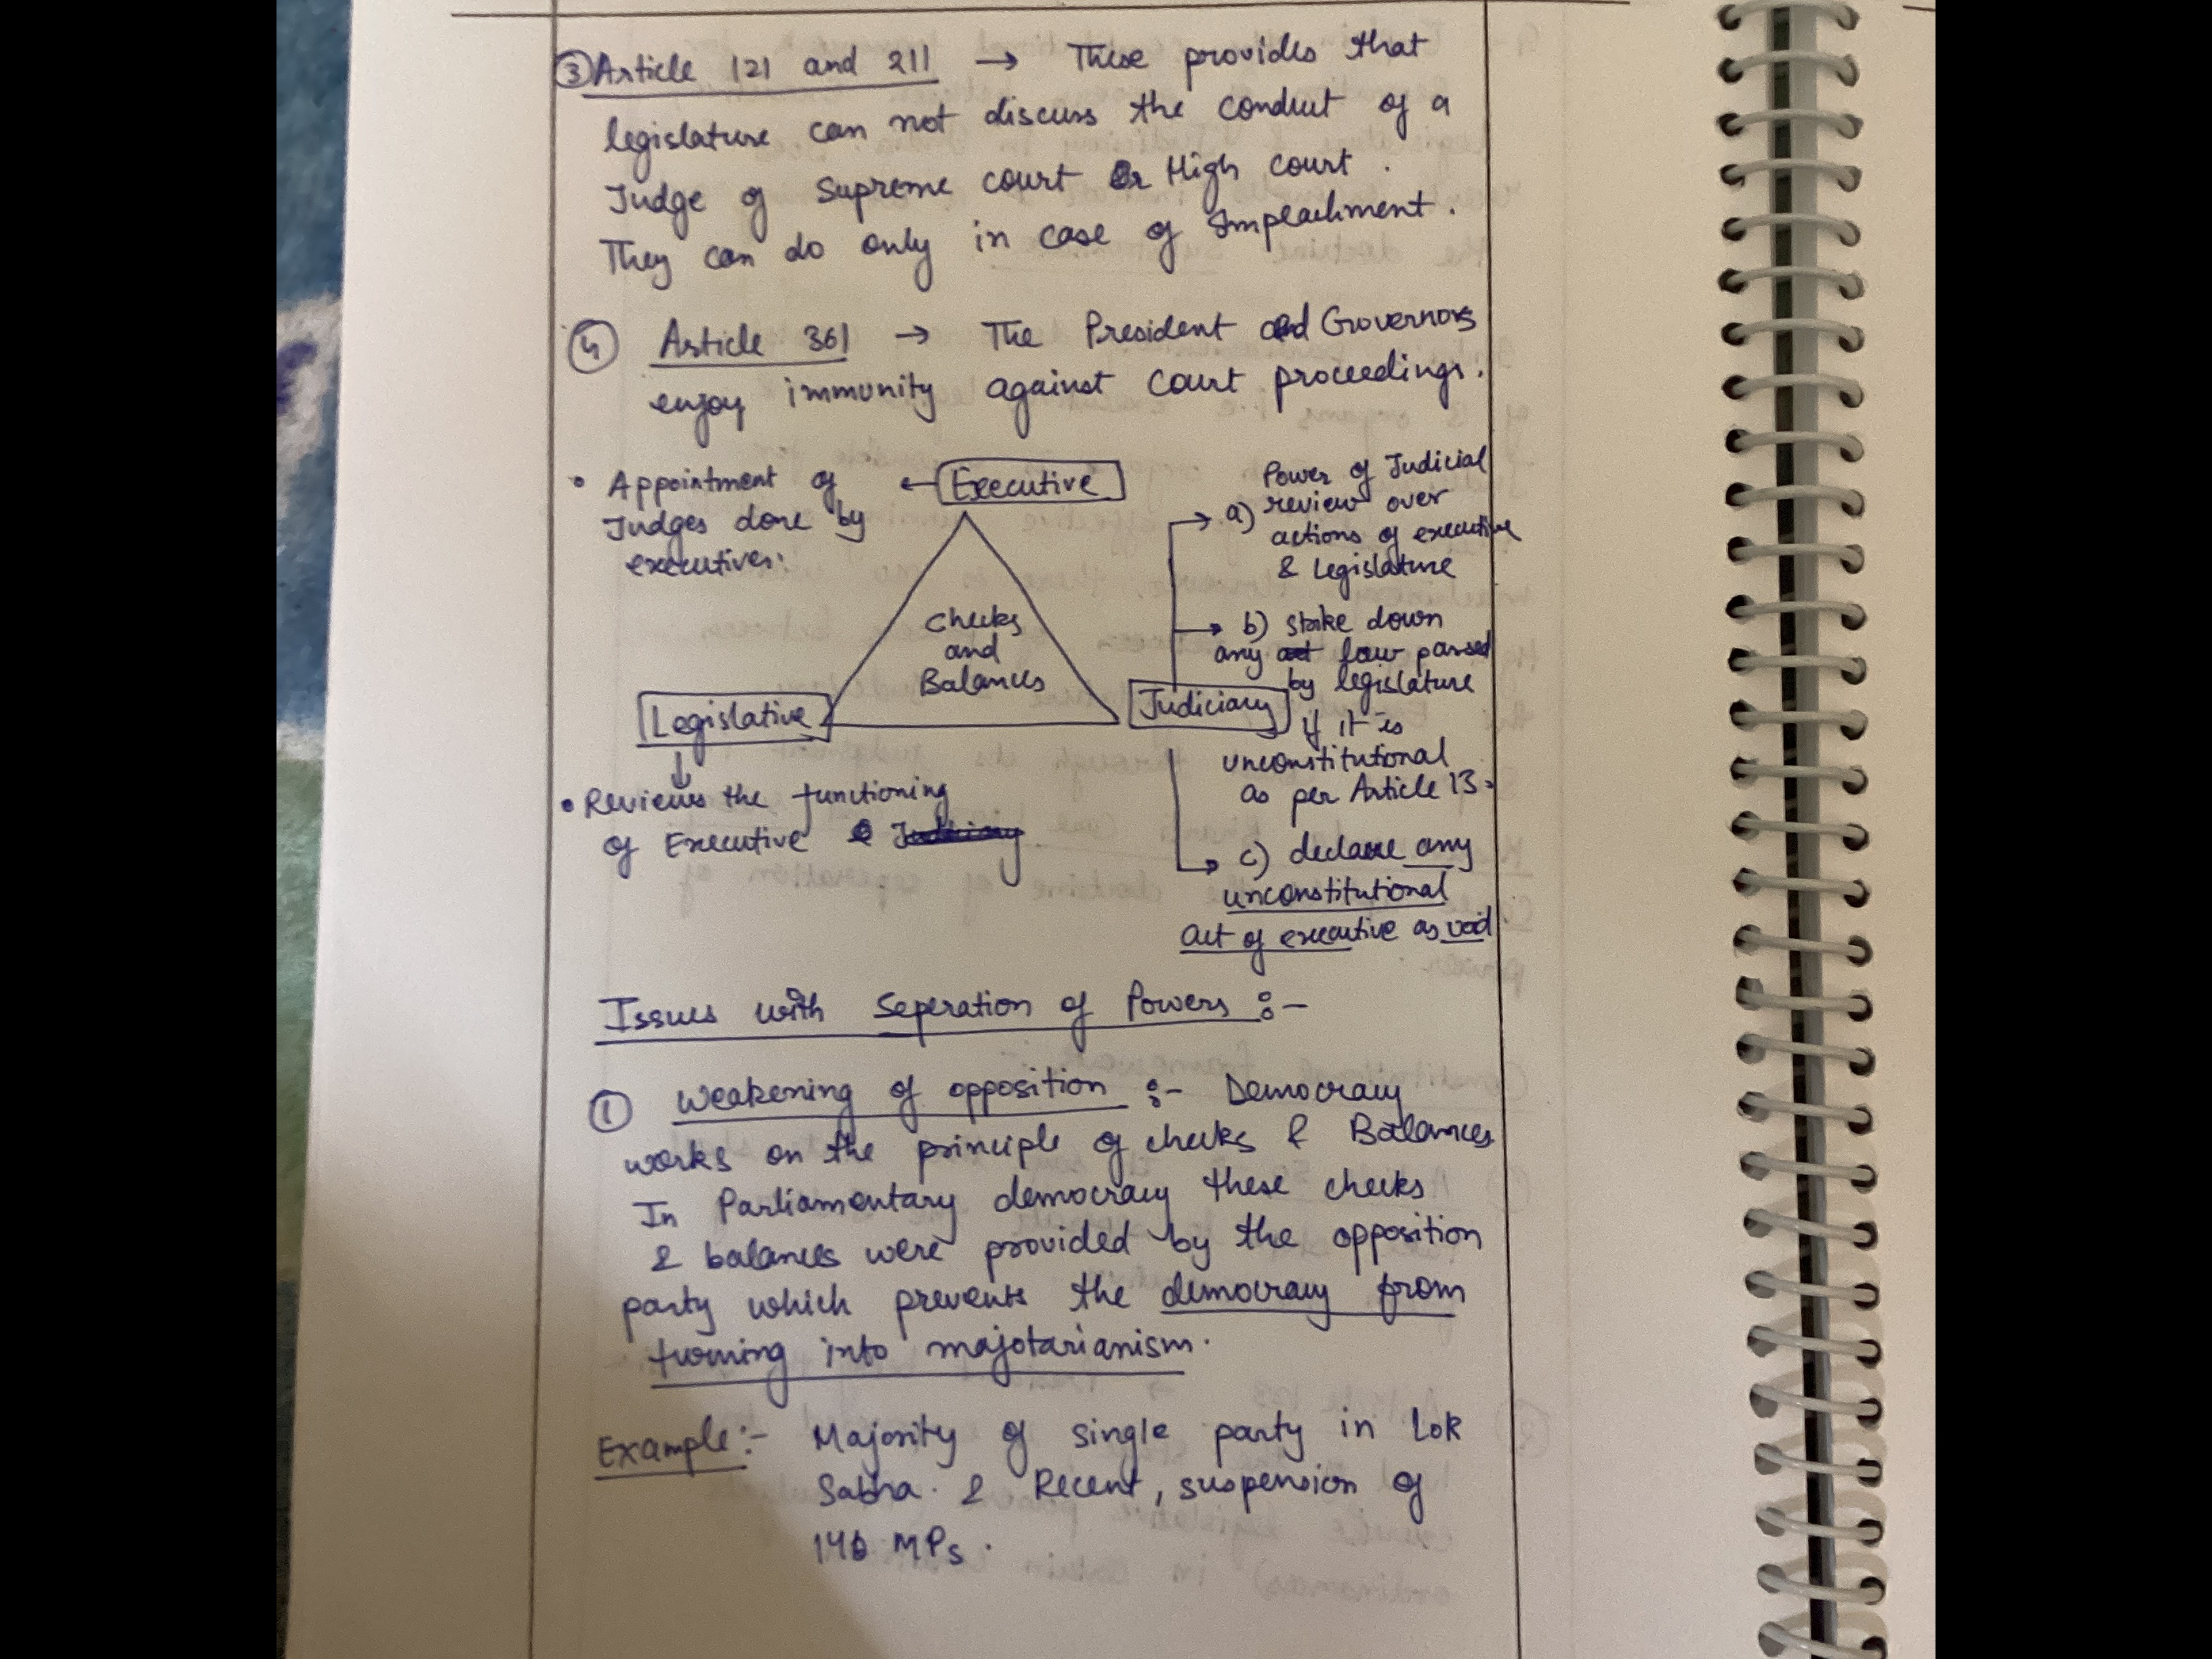 ③ Article 121 and 211 → These provides that
legislature can not discuss the conduct of a
Judge of Supreme court or High court.
They can do only in case of Impeachment.
④ Article 361 → The President and Governors
enjoy immunity against court proceedings.
• Appointment of
Judges done by
executives:
← Executive
Checks
and
Balances
Legislative
Judiciary
↓
• Reviews the functioning
of Executive
→ a) Power of Judicial
review over
actions of executive
& legislature
→ b) stake down
any law passed
by legislature
if it is
unconstitutional
as per Article 13.
→ c) declare any
unconstitutional
act of executive as void
Issues with Seperation of Powers :-
① Weakening of opposition :- Democracy
works on the principle of checks & Balances
In Parliamentary democracy these checks
& balances were provided by the opposition
party which prevents the democracy from
turning into majotarianism.
Example:- Majority of single party in Lok
Sabha. & Recent, suspension of
146 MPs.